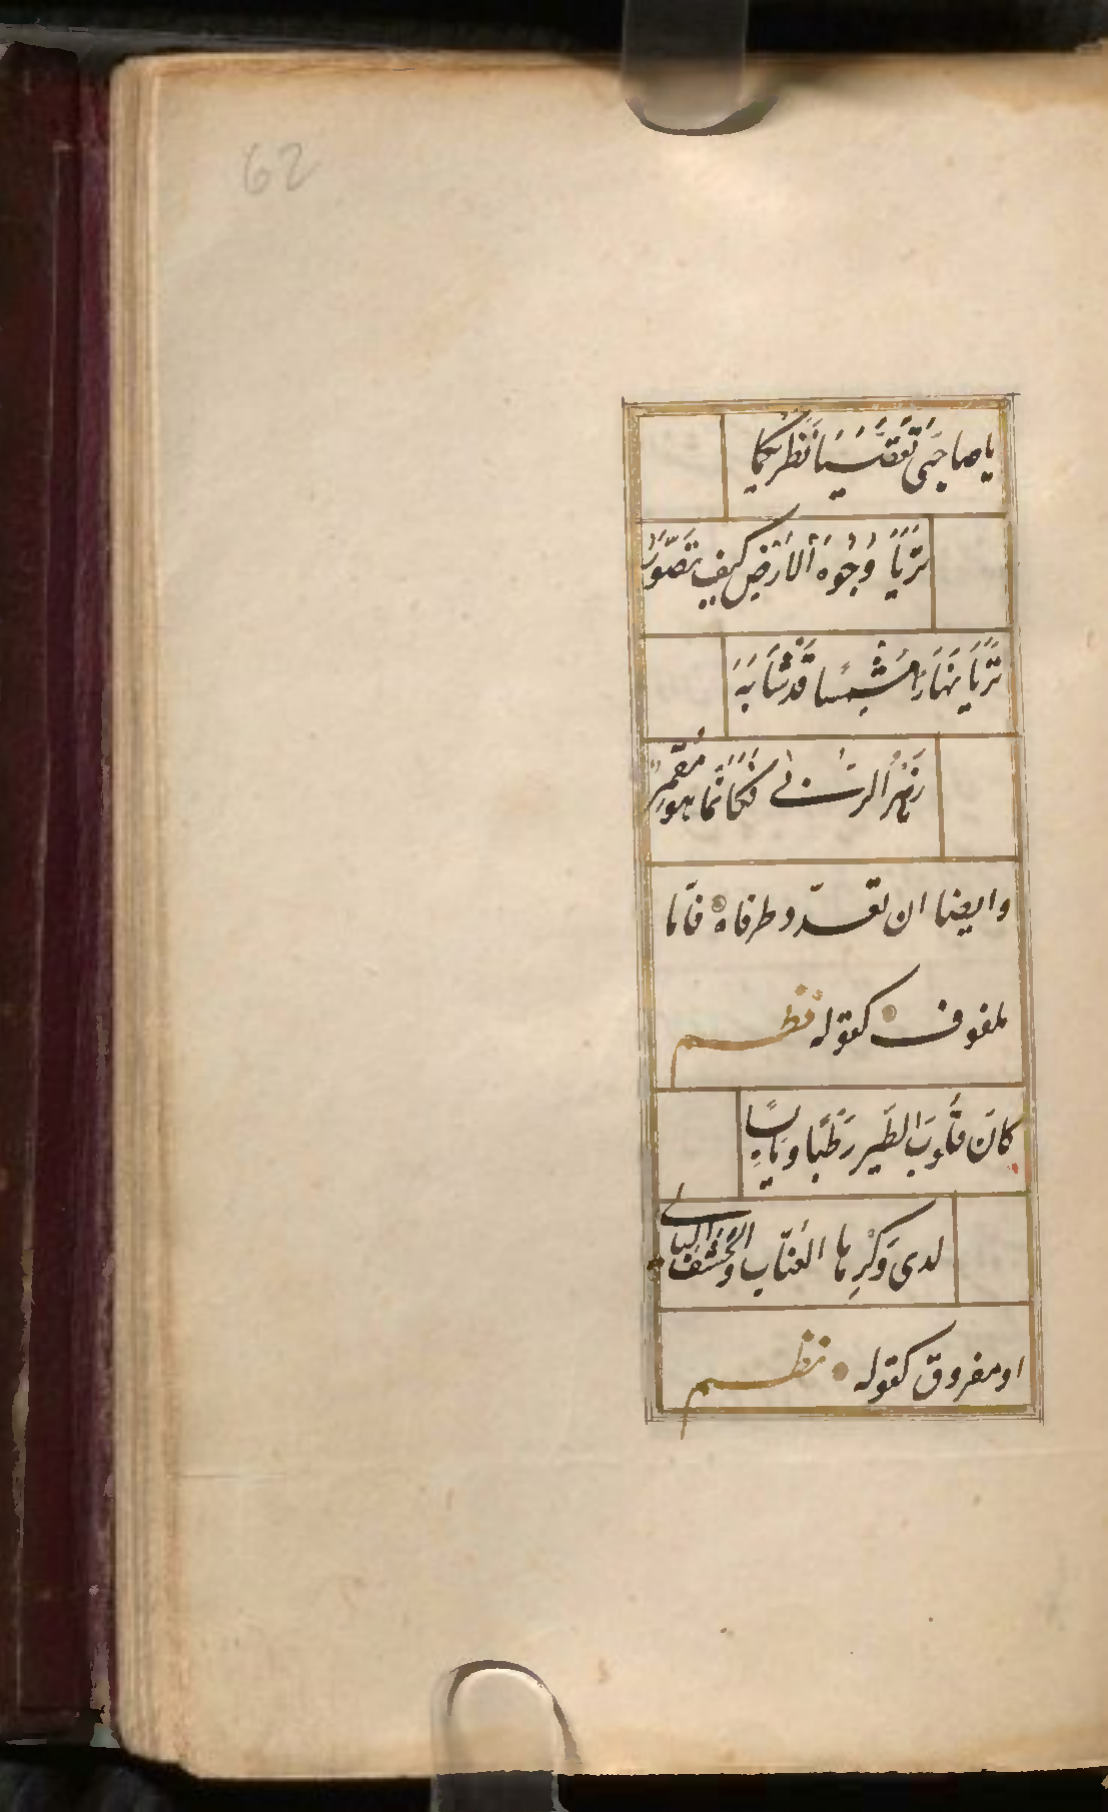 62
يا صاحبى تقصيا نظريكما
تريا وجوه الارض كيف تصور
تريا نهارا مشمسا قد شابه
زهر الربى فكانما هو مقمر
وايضا ان تعدد طرفاه فاما
ملفوف كقوله نظم
كان قلوب الطير رطبا ويابسا
لدى وكرها العناب والحشف البالى
او مفروق كقوله نظم